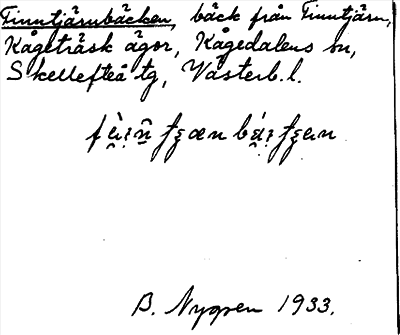 Finntjärnbäcken, bäck från Finntjärn,
Kågeträsk ägor, Kågedalens sn,
Skellefteå tg, Västerb. l.
B. Nygren 1933.